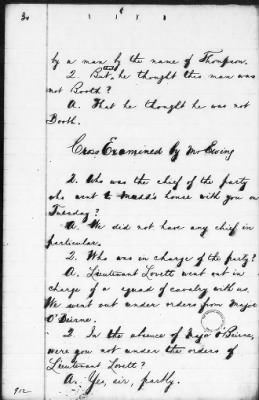 30
by a man by the name of Thompson.
Q. But that he thought this man was
not Booth?
A. That he thought he was not
Booth.
Cross Examined by Mr Ewing
Q. Who was the chief of the party
who went to Mudd's house with you on
Tuesday?
A. We did not have any chief in
particular.
Q. Who was in charge of the party?
A. Lieutenant Lovett went out in
charge of a squad of cavalry with us.
We went out under orders from Major
O'Beirne.
Q. In the absence of Major O'Beirne,
were you not under the orders of
Lieutenant Lovett?
A. Yes, sir, partly.